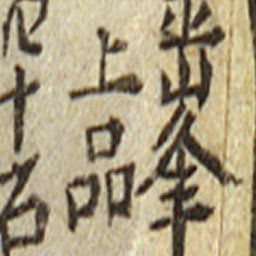 峯
上品
十石